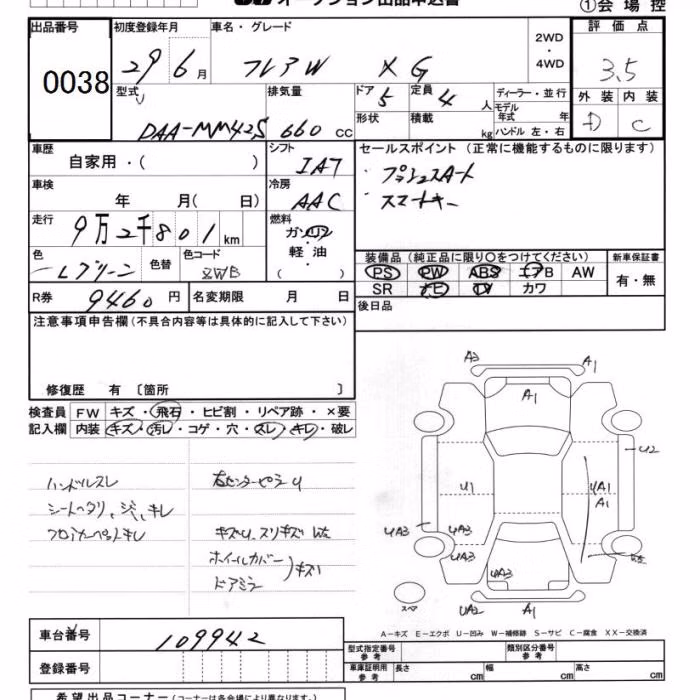 オークション出品申込書
①会場控
出品番号 0038
初度登録年月 29 6月
車名・グレード フレアW XG
2WD・4WD
評価点 3.5
外装 D 内装 C
型式 DAA-MM42S
排気量 660 cc
ドア 5 定員 4 人
形状 積載 kg
ディーラー・並行
モデル年式 年
ハンドル 左・右
車歴 自家用・( )
シフト IA7
セールスポイント (正常に機能するものに限ります)
・プッシュスタート
・スマートキー
車検 年 月(日)
冷房 AAC
走行 9万2千801km
燃料 ガソリン 軽油 ( ・ )
色 Lグリーン 色替 色コード ZWB
装備品 (純正品に限り○をつけてください)
PS PW ABS エアB AW
SR ナビ TV カワ
新車保証書 有・無
R券 9460円 名変期限 月 日
後日品
注意事項申告欄 (不具合内容等は具体的に記入して下さい)
修復歴 有 〔箇所 〕
検査員記入欄
FW キズ・飛石・ヒビ割・リペア跡・×要
内装 キズ・汚レ・コゲ・穴・スレ・キレ・破レ
ハンドルスレ
フロアカーペットキレ
右センターピラーU
ホイールカバー
ドアミラー
キズ
A3 A1
A1
U2
U1 UA1
A1
UA3 UA3
UA3
UA3
スペア UA2 A1
A-キズ E-エクボ U-凹み W-補修跡 S-サビ C-腐食 XX-交換済
車台番号 109942
型式指定番号 参考 類別区分番号 参考
登録番号
車庫証明用 参考 長さ cm 幅 cm 高さ cm
希望出品コーナー (コーナーは各会場により異なります。)